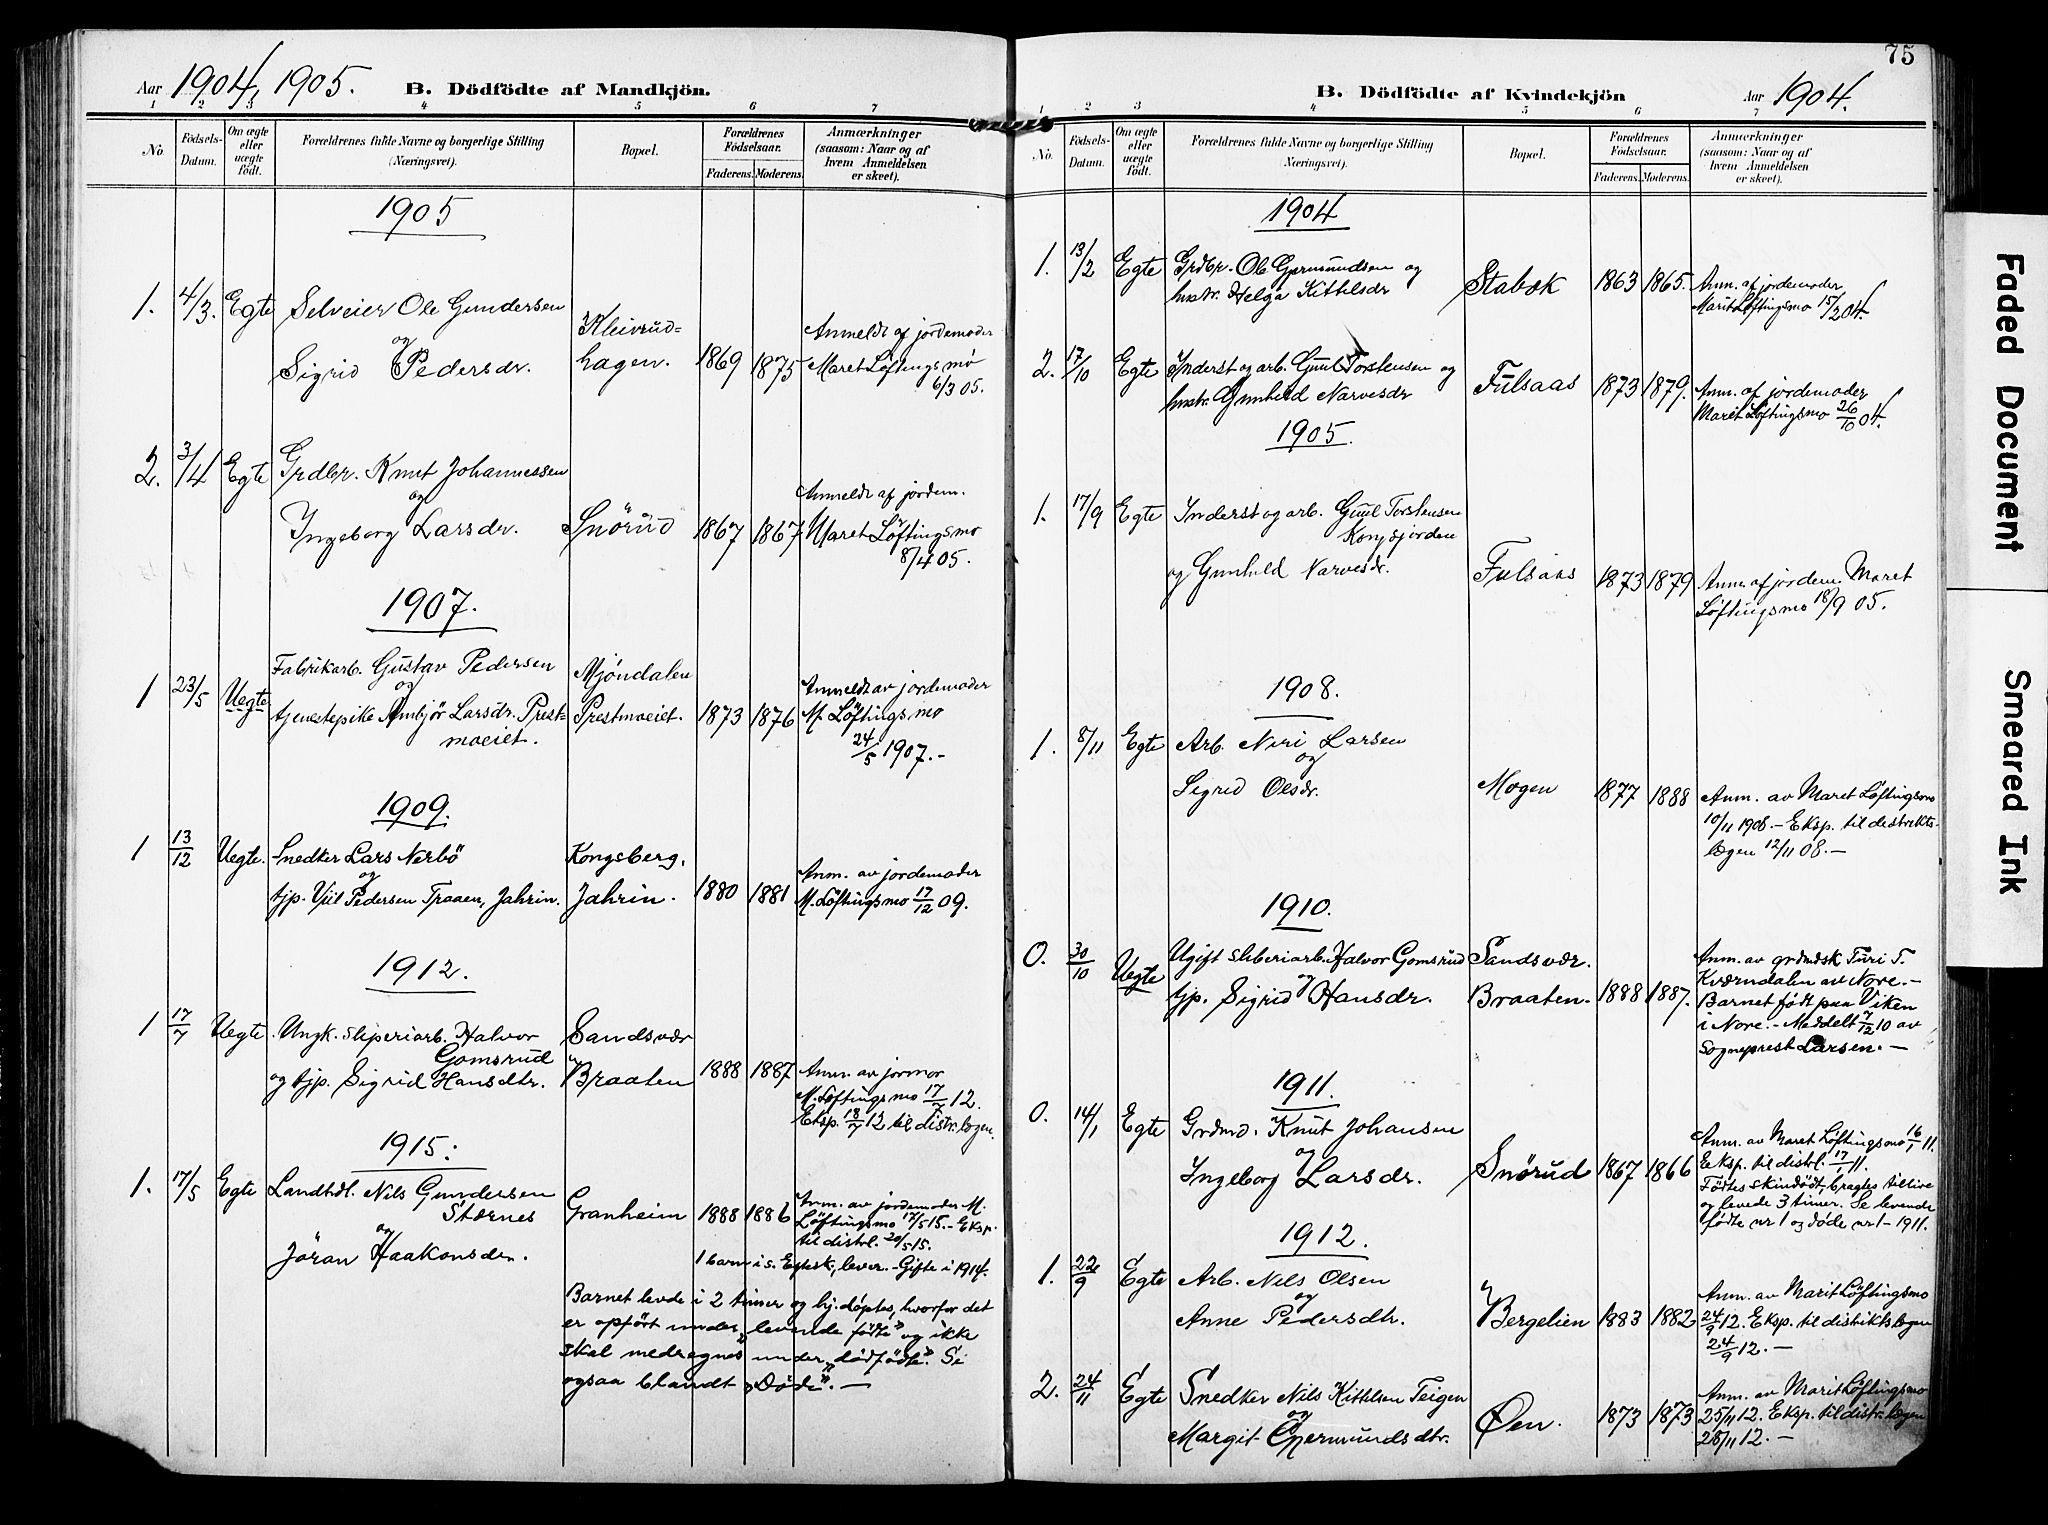 Aar 1904, 1905. B. Dödfödte af Mandkjön.
1 2 3 4 5 6 7
No. Födsels-Datum. Om ægte eller uægte födt. Forældrenes fulde Navne og borgerlige Stilling (Næringsvei). Bopæl. Forældrenes Födselsaar. Faderens. Moderens. Anmærkninger (saasom: Naar og af hvem Anmeldelsen er skeet).
1905
1. 4/3. Egte Selveier Ole Gundersen
og
Sigrid Pedersdr.
Kleivrud-
hagen. 1869 1875
Anmeldt af jordemoder
Maret Löftingsmo
6/3 05.
2. 3/4 Egte Grdbr. Knut Johannessen
og
Ingeborg Larsdr. Snörud 1867 1867
Anmeldt af jordem.
Maret Löftingsmo
8/4 05.
1907.
1 23/5 Uegte Fabrikarb. Gustav Pedersen
og
tjenestepike Ambjör Larsdr. Prest-
moeiet.
Mjöndalen
Prestmoeiet. 1873 1876
Anmeldt av jordemoder
M. Löftingsmo
24/5 1907.-
1909.
1 13/12 Uegte. Snedker Lars Nerbö
og
tjp. Viil Pedersen Traaen, Jahrin.
Kongsberg.
Jahrin. 1880 1881
Anm. av jordemoder
M. Löftingsmo 17/12 09.
1912.
1 17/7 Uegte. Ungk. sliperiarb. Halvor
Gomsrud
og tjp. Sigrid Hansdtr.
Sandsvær
Braaten 1888 1887
Anm. av jormor
M. Löftingsmo 17/7 12.
Eksp. 18/7 12 til distr.lægen.
1915:
1. 17/5 Egte Landhdl. Nils Gundersen
Stærnes
og
Jöran Haakonsdtr.
Granheim 1888 1886
Anm. av jordemoder M.
Löftingsmo 17/5 15.- Eksp.
til distrl. 20/5 15.
1 barn i s. Egtesk., lever.- Gifte i 1914.
Barnet levde i 2 timer og hj.döptes, hvorfor det
er opfört under "levende födte" og ikke
skal medregnes under "dödfödte". Se
ogsaa blandt "Döde".-
75
B. Dödfödte af Kvindekjön Aar 1904.
1 2 3 4 5 6 7
No. Födsels-Datum. Om ægte eller uægte födt. Forældrenes fulde Navne og borgerlige Stilling (Næringsvei). Bopæl. Forældrenes Födselsaar. Faderens. Moderens. Anmærkninger (saasom: Naar og af hvem Anmeldelsen er skeet).
1904
1. 13/2 Egte Grdbr. Ole Germundsen og
hustr. Helga Kittilsdr
Stabæk 1863 1865.
Anm. af jordemoder
Marit Löftingsmo 15/2 04.
2. 17/10 Egte Inderst og arb. Guul Torstensen og
hustr. Gunhild Narvesdr
Fulsaas 1873 1879.
Anm. af jordemoder
Marit Löftingsmo 26/10 04.
1905.
1. 17/9 Egte Inderst og arb. Guul Torstensen
Kongsjorden
og Gunhild Narvesdr.
Fulsaas 1873 1879
Anm. af jordem. Maret
Löftingsmo 18/9 05.
1908.
1. 8/11 Egte Arb. Neri Larsen
og
Sigrid Olsdr. Mogen 1877 1888
Anm. av Maret Löftingsmo
10/11 1908.- Eksp. til distrikts-
lægen 12/11 08.-
1910.
0. 30/10 Uegte Ugift sliberiarb. Halvor Gomsrud
og
tjp. Sigrid Hansdr.
Sandsvær.
Braaten. 1888 1887.
Anm. av grdmdsk Turi T.
Kværndalen av Nore.-
Barnet född paa Viken
i Nore.- Meddelt 7/12 10 av
Sogneprest Larsen.-
1911.
0. 14/1 Egte Grdmd. Knut Johansen
og
Ingeborg Larsdr. Snörud 1867 1866
Anm. av Maret Löftingsmo 16/1 11.
Eksp. til distrl. 17/1 11.
Födtes skindödt, bragtes tillive
og levede 3 timer. Se levende
födte nr 1 og döde nr 1 - 1911.
1912.
1. 22/9 Egte Arb. Nils Olsen
og
Anne Pedersdtr. Bergelien 1883 1882
Anm. av Marit Löftingsmo
24/9 12. Eksp. til distriktslægen
24/9 12.-
2. 24/11 Egte Snedker Nils Kittelsen Teigen
og
Margit Germundsdtr. Øen. 1873 1873
Anm. av Marit Löftingsmo
25/11 12. Eksp. til distr.lægen
25/11 12.-
Faded Document
Smeared Ink